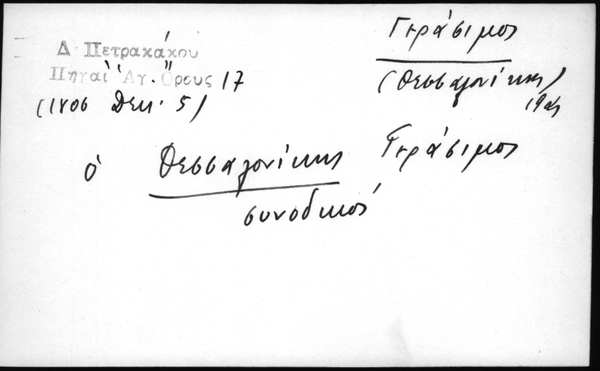 Γεράσιμος
(Θεσσαλονίκης)
Δ Πετρακάκου
Πηγαὶ Ἁγ. Ὄρους 17
(1805 Δεκ. 5)
ὁ Θεσσαλονίκης Γεράσιμος
συνοδικός